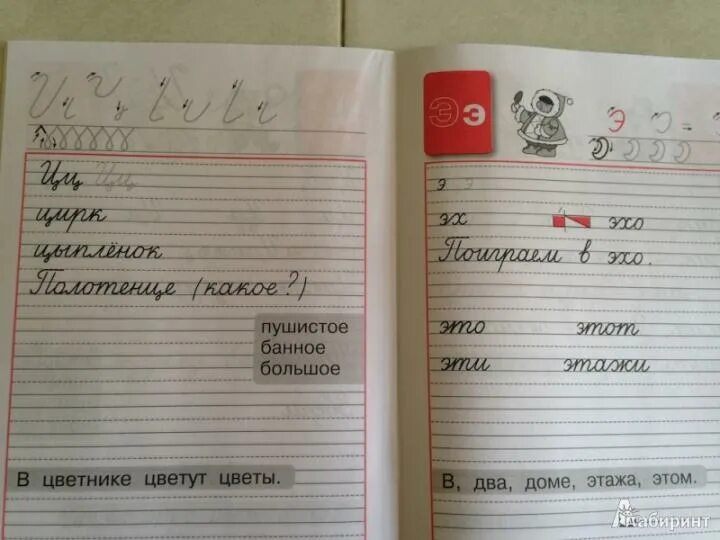 Цц Цц
цирк
цыплёнок
Полотенце (какое?)
пушистое
банное
большое
В цветнике цветут цветы.
Ээ
Э
э э
эх эхо
Поиграем в эхо.
это этот
эти этажи
В, два, доме, этажа, этом.
Лабиринт